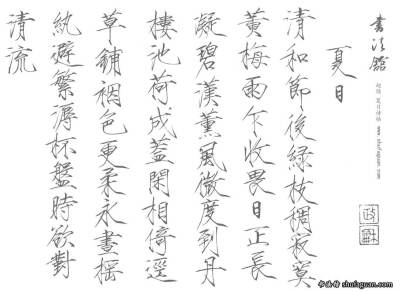 書法館
趙佶 夏日诗帖 www.shufaguan.com
夏日
清和節後綠枝稠寂莫
黃梅雨乍收畏日正長
凝碧漢薰風微度到丹
樓池荷成蓋閑相倚逕
草鋪裀色更柔永晝搖
紈避繁溽杯盤時欲對
清流
政龢
书法馆 shufaguan.com